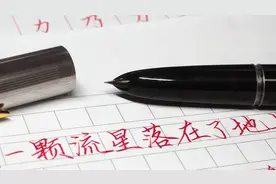 力乃
一颗流星落在了地